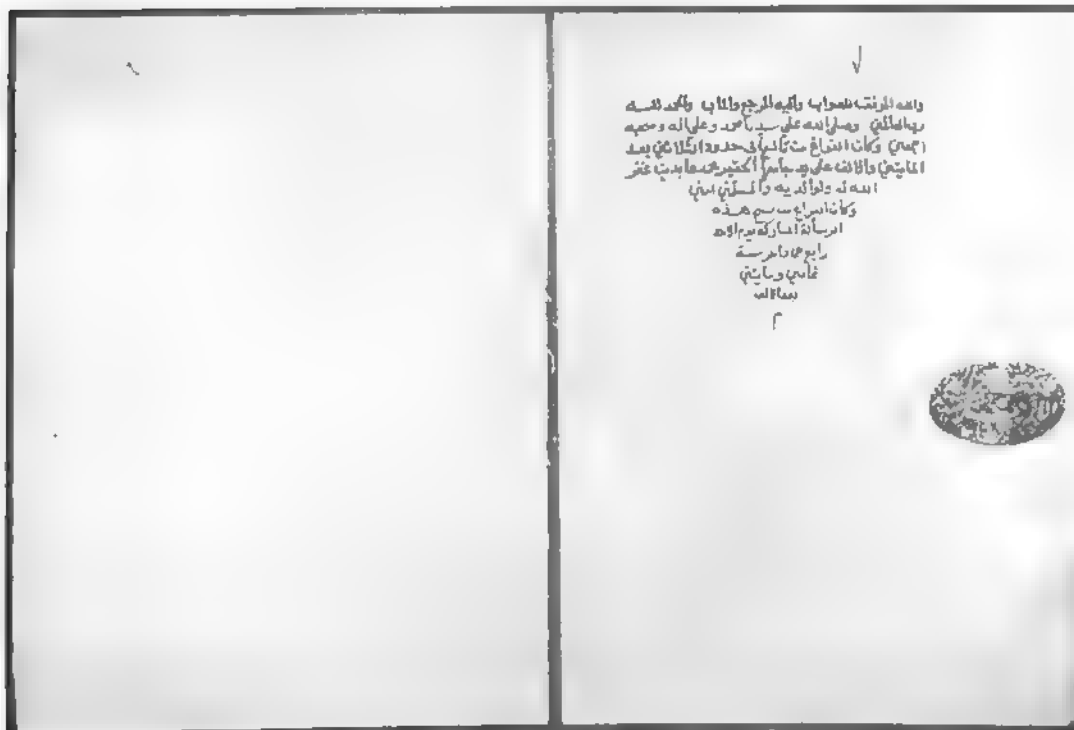 والله الموفق للصواب واليه المرجع والماب والحمد لله
رب العالمين وصلى الله على سيدنا محمد وعلى اله وصحبه
اجمعين وكان الفراغ من تأليفها في حدود الثلاثين بعد
المايتين والالف على يد جامعها الحقير محمد عابدين غفر
الله له ولوالديه والمسلمين امين
وكان الفراغ من هذه
الرسالة المباركة يوم الاحد
رابع جمادا سنة
ثمانين ومايتين
بعد الالف
م